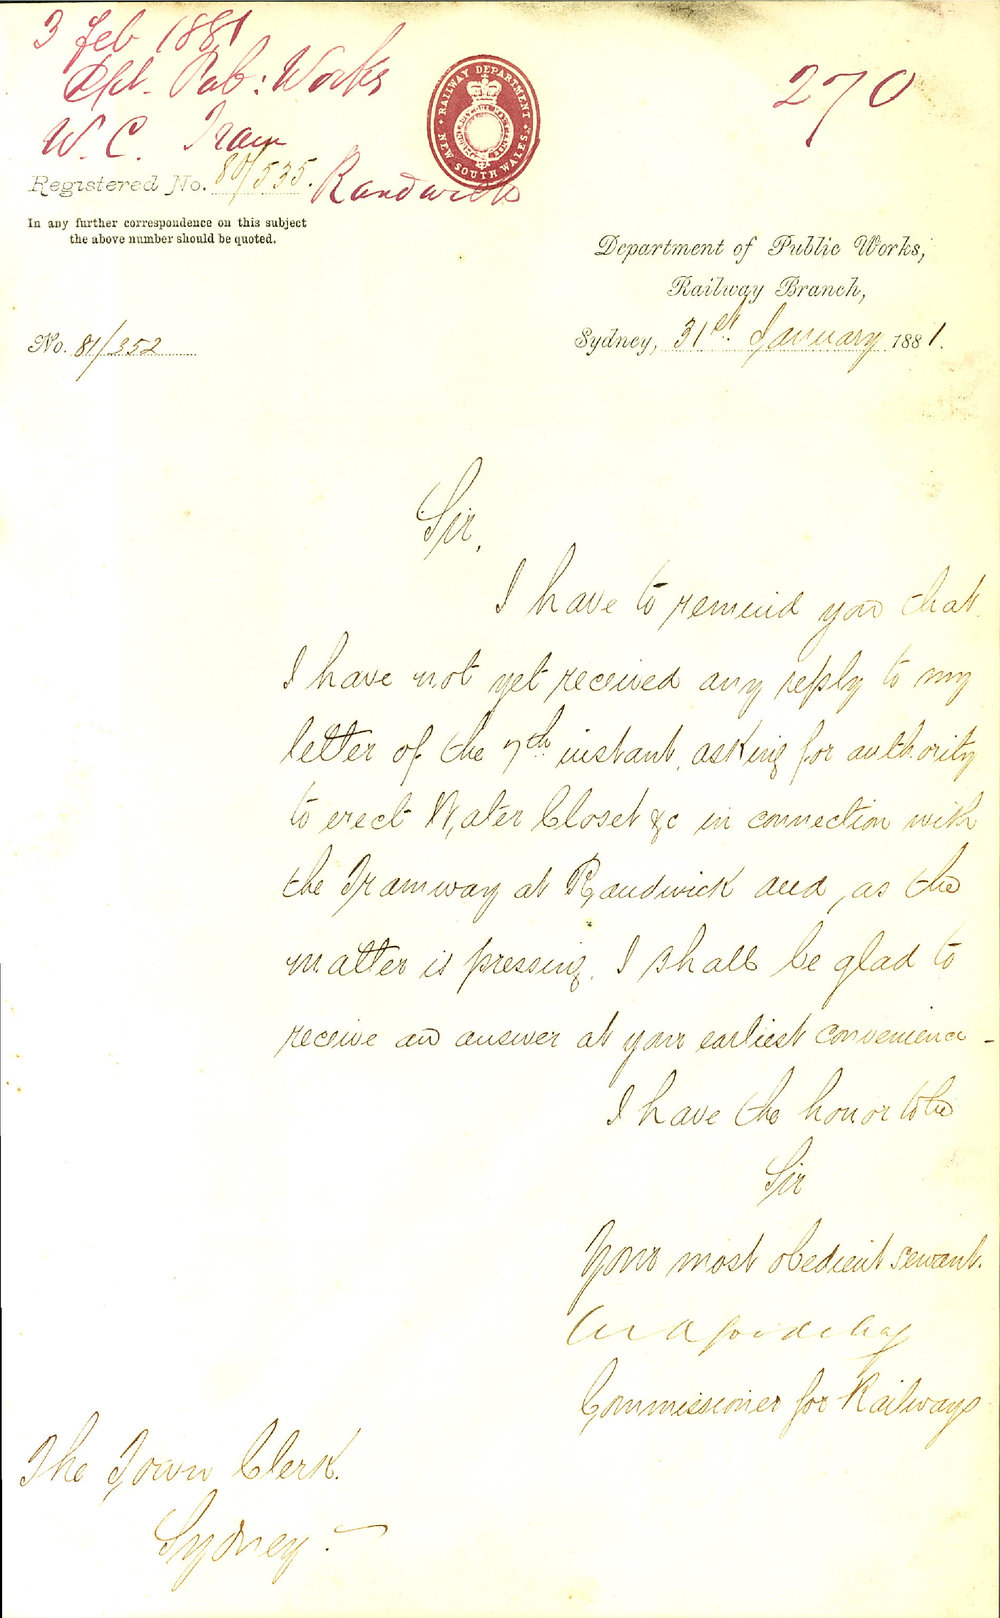 3 Feb 1881
Dpt. Pub: Works
W. C. Tram
Randwick
270
RAILWAY DEPARTMENT
NEW SOUTH WALES
Registered No. 80/535.
In any further correspondence on this subject
the above number should be quoted.
Department of Public Works,
Railway Branch,
No. 81/352
Sydney, 31st January 1881.
Sir,
I have to remind you that
I have not yet received any reply to my
letter of the 7th instant, asking for authority
to erect Water Closet &c in connection with
the Tramway at Randwick and, as the
matter is pressing, I shall be glad to
receive an answer at your earliest convenience -
I have the honor to be
Sir
Your most obedient servant.
Commissioner for Railways
The Town Clerk.
Sydney. -